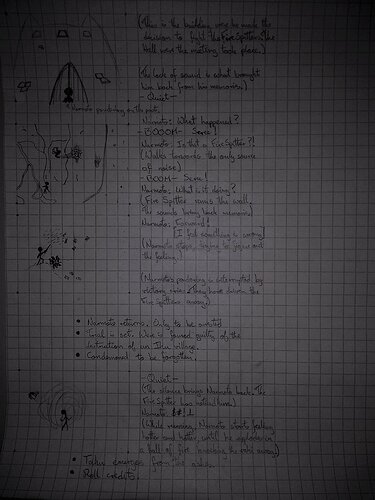 (This is the building were he made the
decision to fight the Fire Spitters. The
Hall were the meeting took place.)
(The lack of sound is what brought
him back from his memories.)
- Quiet -
Narmoto pondering on the past.
Narmoto: What happened?
- BOOOM - Serie!
Narmoto: Is that a Fire Spitter?!
(Walks towards the only source
of noise)
- BOOM - Serie!
Narmoto: What is it doing?
(Fire Spitter rams the wall.
The sounds bring back memories)
Narmoto: Forward!
[I feel something is wrong]
(Narmoto stops, trying to focus on
the feeling.)
(Narmoto's pondering is interrupted by
victory cries. They have driven the
Fire Spitters away)
• Narmoto returns. Only to be arrested
• Trial is set. Were is found guilty of the
destruction of an village.
• Condemned to be forgotten.
- Quiet -
(The silence brings Narmoto back. The
Fire Spitter has noticed him)
Narmoto:
(While running, Narmoto starts feeling
hotter and hotter, until he explodes in
a ball of fire
• from the
• Roll credits.